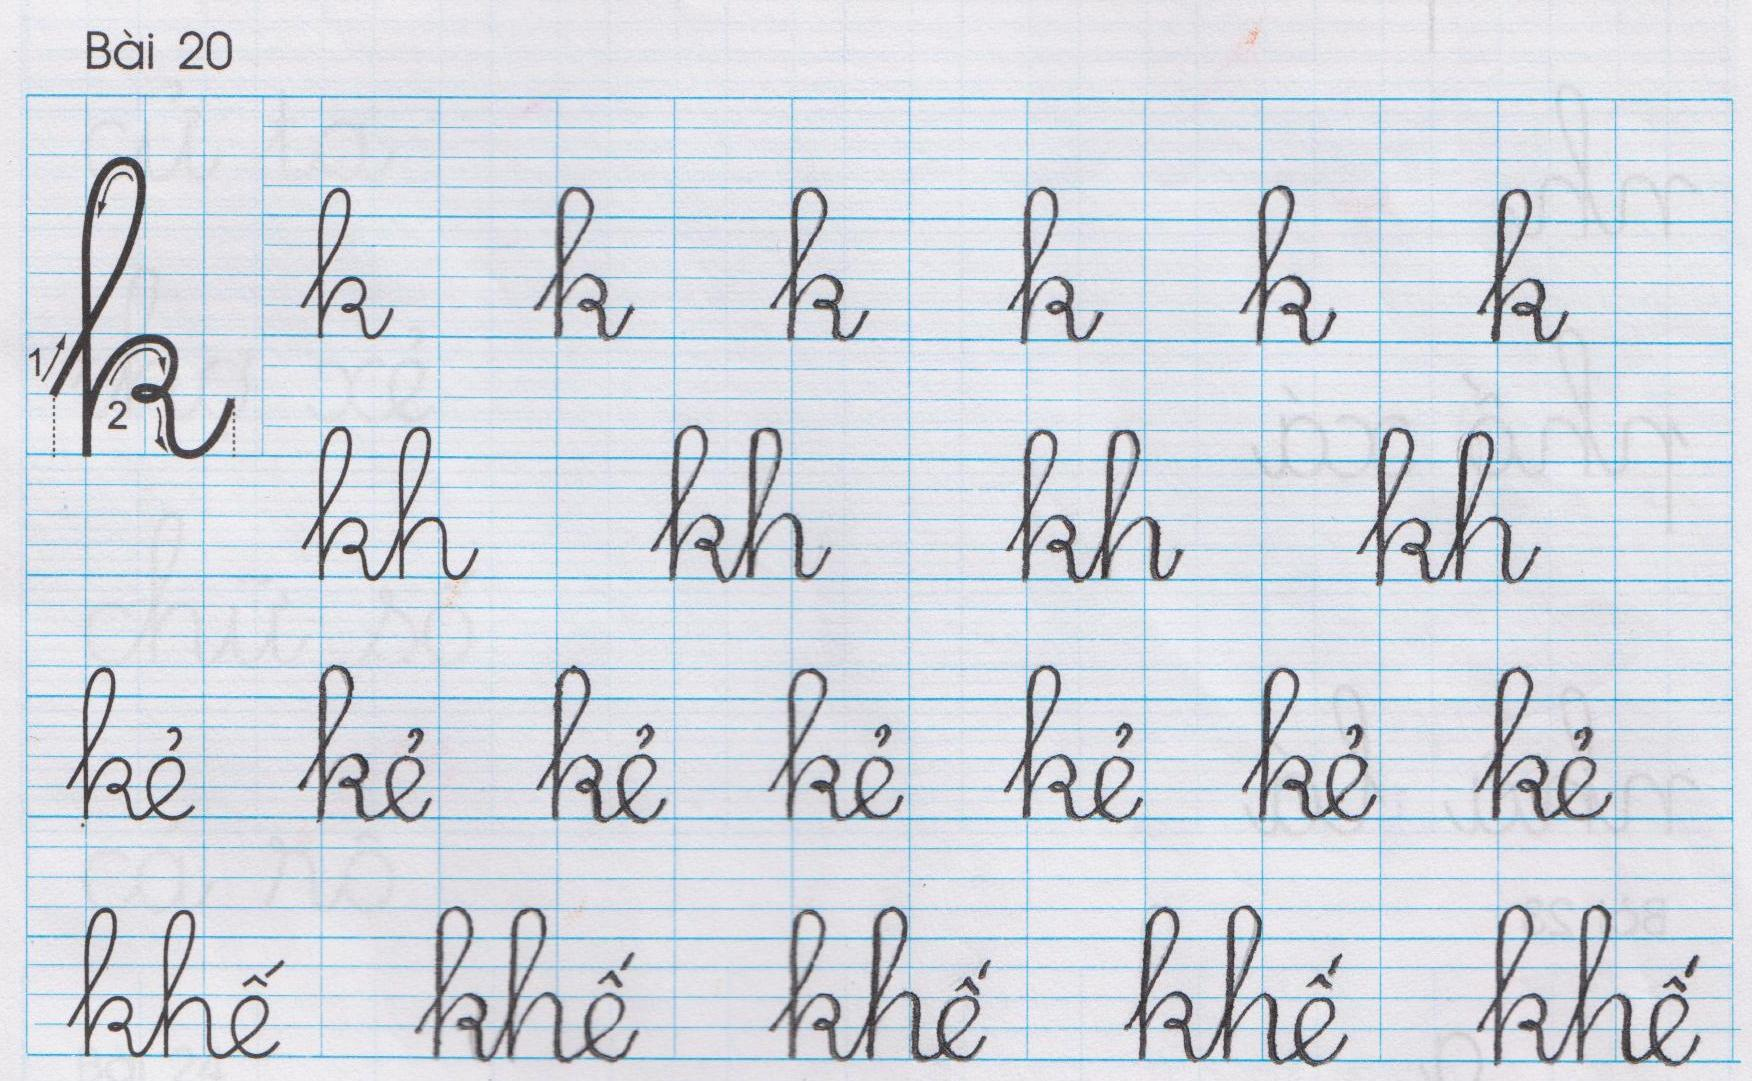 Bài 20
k k k k k k k
1 2
kh kh kh kh
kẻ kẻ kẻ kẻ kẻ kẻ kẻ
khế khế khế khế khế